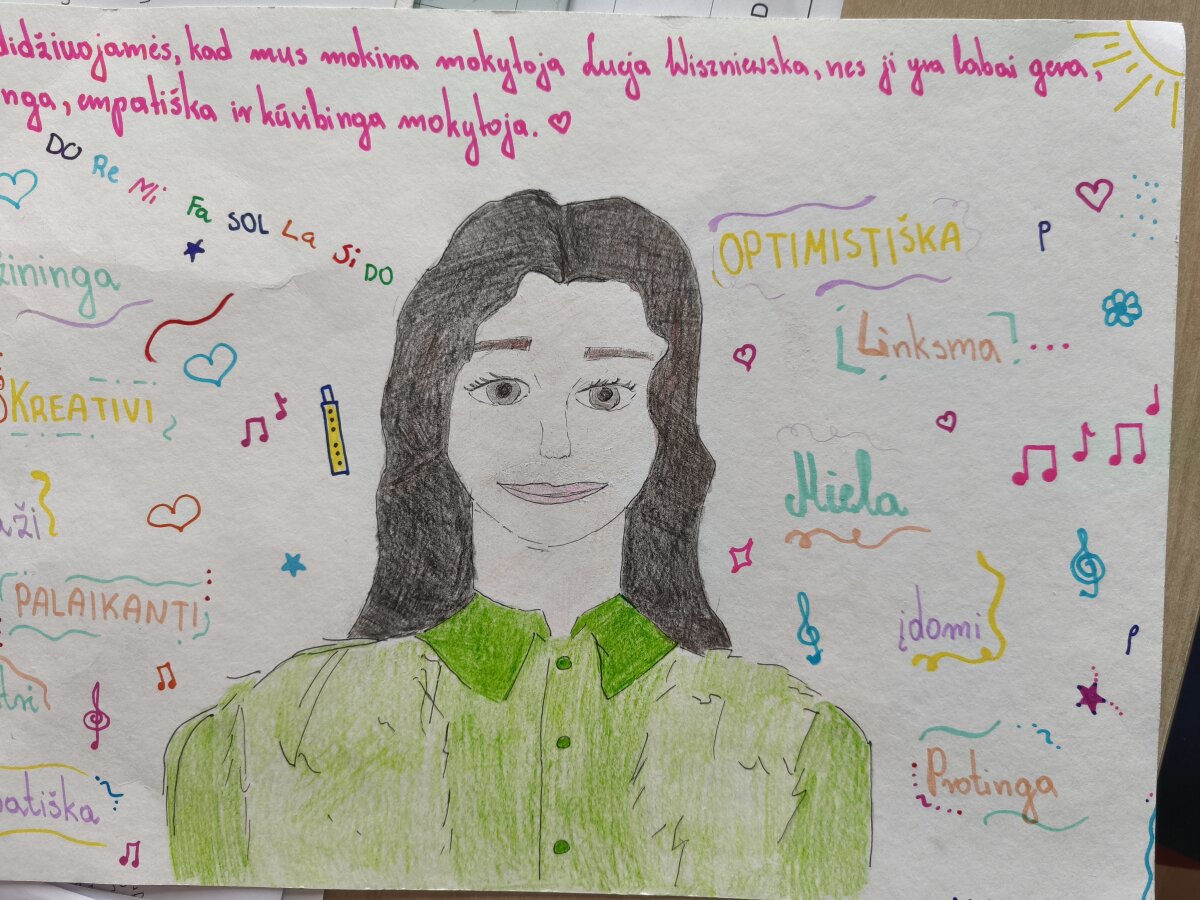 didžiuojamės, kad mus mokina mokytoja Lucja Wiszniewska, nes ji yra labai gera,
nga, empatiška ir kūribinga mokytoja.
DO Re Mi Fa SOL La Si DO
žininga
OPTIMISTIŠKA
P
Linksma
KREATIVI
Miela
aži
PALAIKANTI
įdomi
tri
Protinga
patiška